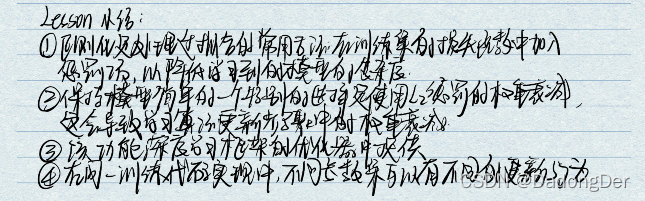 Lesson 小结:
①正则化是处理过拟合的常用方法:在训练集的损失函数中加入
惩罚项,以降低学习到的模型的复杂度.
②保持模型简单的一个特别的选择是使用L2惩罚的权重衰减,
这会导致学习算法更新步骤中的权重衰减.
③该功能深度学习框架的优化器中提供
④在同一训练代码实现中,不同参数集可以有不同的更新行为
CSDN @DadongDer